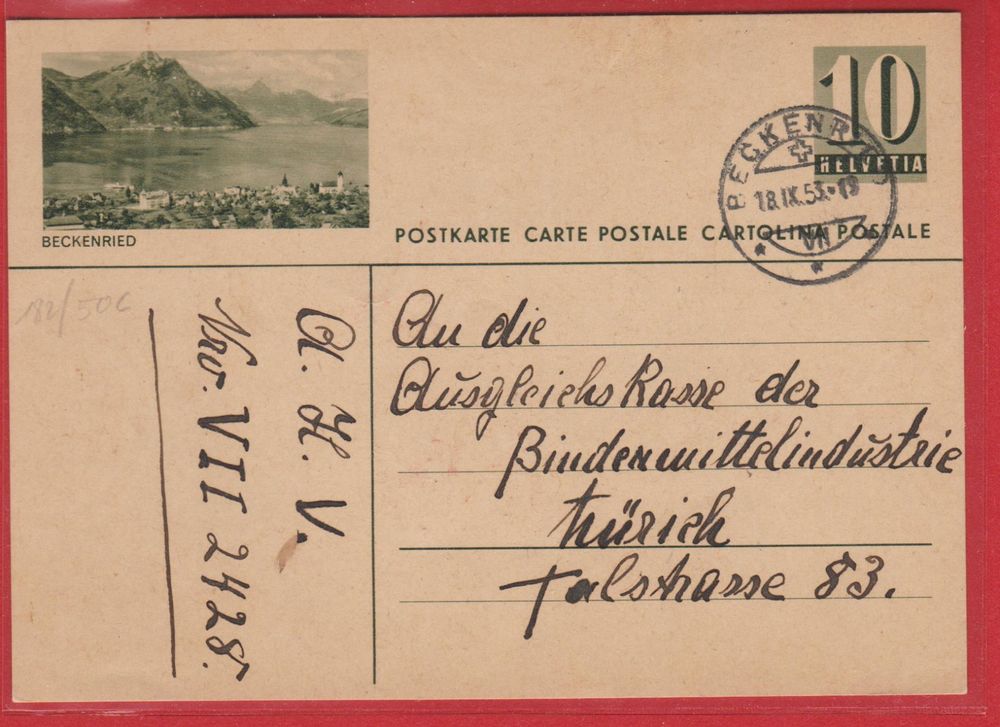 10
HELVETIA
BECKENRIED
18.IX.53.-19
VII
BECKENRIED
POSTKARTE CARTE POSTALE CARTOLINA POSTALE
182/50c
A. H. V.
VII 2428.
An die
Ausgleichskasse der
Bindemittelindustrie
Zürich
Talstrasse 83.